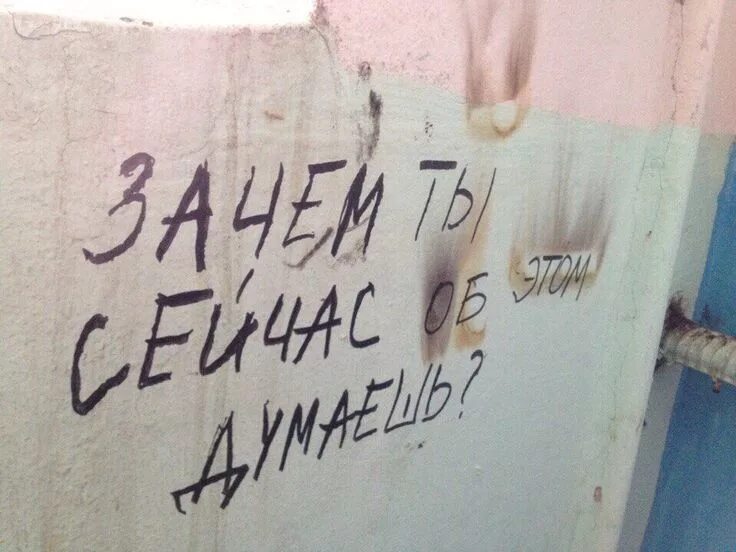 ЗАЧЕМ ТЫ
СЕЙЧАС ОБ ЭТОМ
ДУМАЕШЬ?